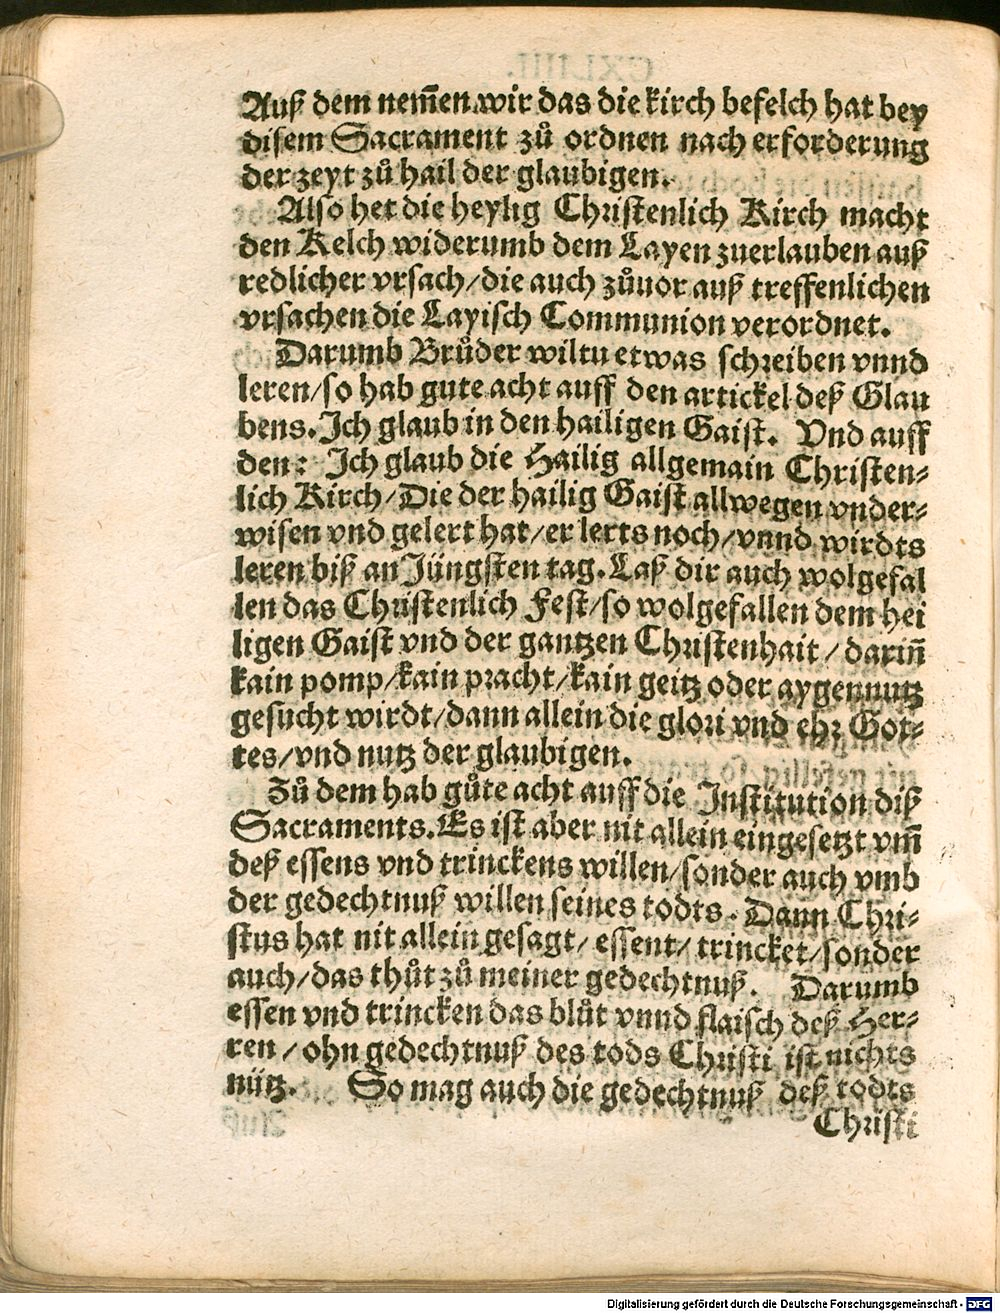 Auß dem nem̃en wir das die kirch befelch hat bey
disem Sacrament zů ordnen nach erforderung
der zeyt zů hail der glaubigen.
Also het die heylig Christenlich Kirch macht
den Kelch widerumb dem Layen zuerlauben auß
redlicher vrsach/die auch zůuor auß treffenlichen
vrsachen die Layisch Communion verordnet.
Darumb Brůder wiltu etwas schreiben vnnd
leren/so hab gute acht auff den artickel deß Glau
bens. Ich glaub in den hailigen Gaist. Vnd auff
den: Ich glaub die Hailig allgemain Christen-
lich Kirch/Die der hailig Gaist allwegen vnder-
wisen vnd gelert hat/er lerts noch/vnnd wirdts
leren biß an Jüngsten tag. Laß dir auch wolgefal
len das Christenlich Fest/so wolgefallen dem hei
ligen Gaist vnd der gantzen Christenhait/darin̄
kain pomp/kain pracht/kain geitz oder aygennutz
gesucht wirdt/dann allein die glori vnd ehr Got-
tes/vnd nutz der glaubigen.
Zů dem hab gůte acht auff die Institution diß
Sacraments. Es ist aber nit allein eingesetzt vm̃
deß essens vnd trinckens willen/sonder auch vmb
der gedechtnuß willen seines todts. Dann Chri-
stus hat nit allein gesagt/essent/trincket/sonder
auch/das thůt zů meiner gedechtnuß. Darumb
essen vnd trincken das blůt vnnd flaisch deß Her-
ren/ohn gedechtnuß des tods Christi ist nichts
nütz. So mag auch die gedechtnuß deß todts
Christi
Digitalisierung gefördert durch die Deutsche Forschungsgemeinschaft - DFG